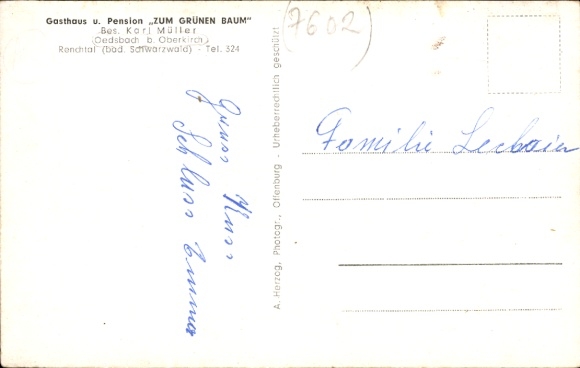 Gasthaus u. Pension „ZUM GRÜNEN BAUM"
Bes. Karl Müller
(Oedsbach b. Oberkirch)
Renchtal (bad. Schwarzwald) - Tel. 324
(7602)
Gruss Kuss
Schluss Emma
A. Herzog, Photogr., Offenburg - Urheberrechtlich geschützt
Familie